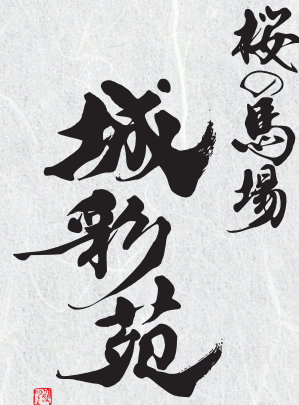 桜の馬場
城彩苑